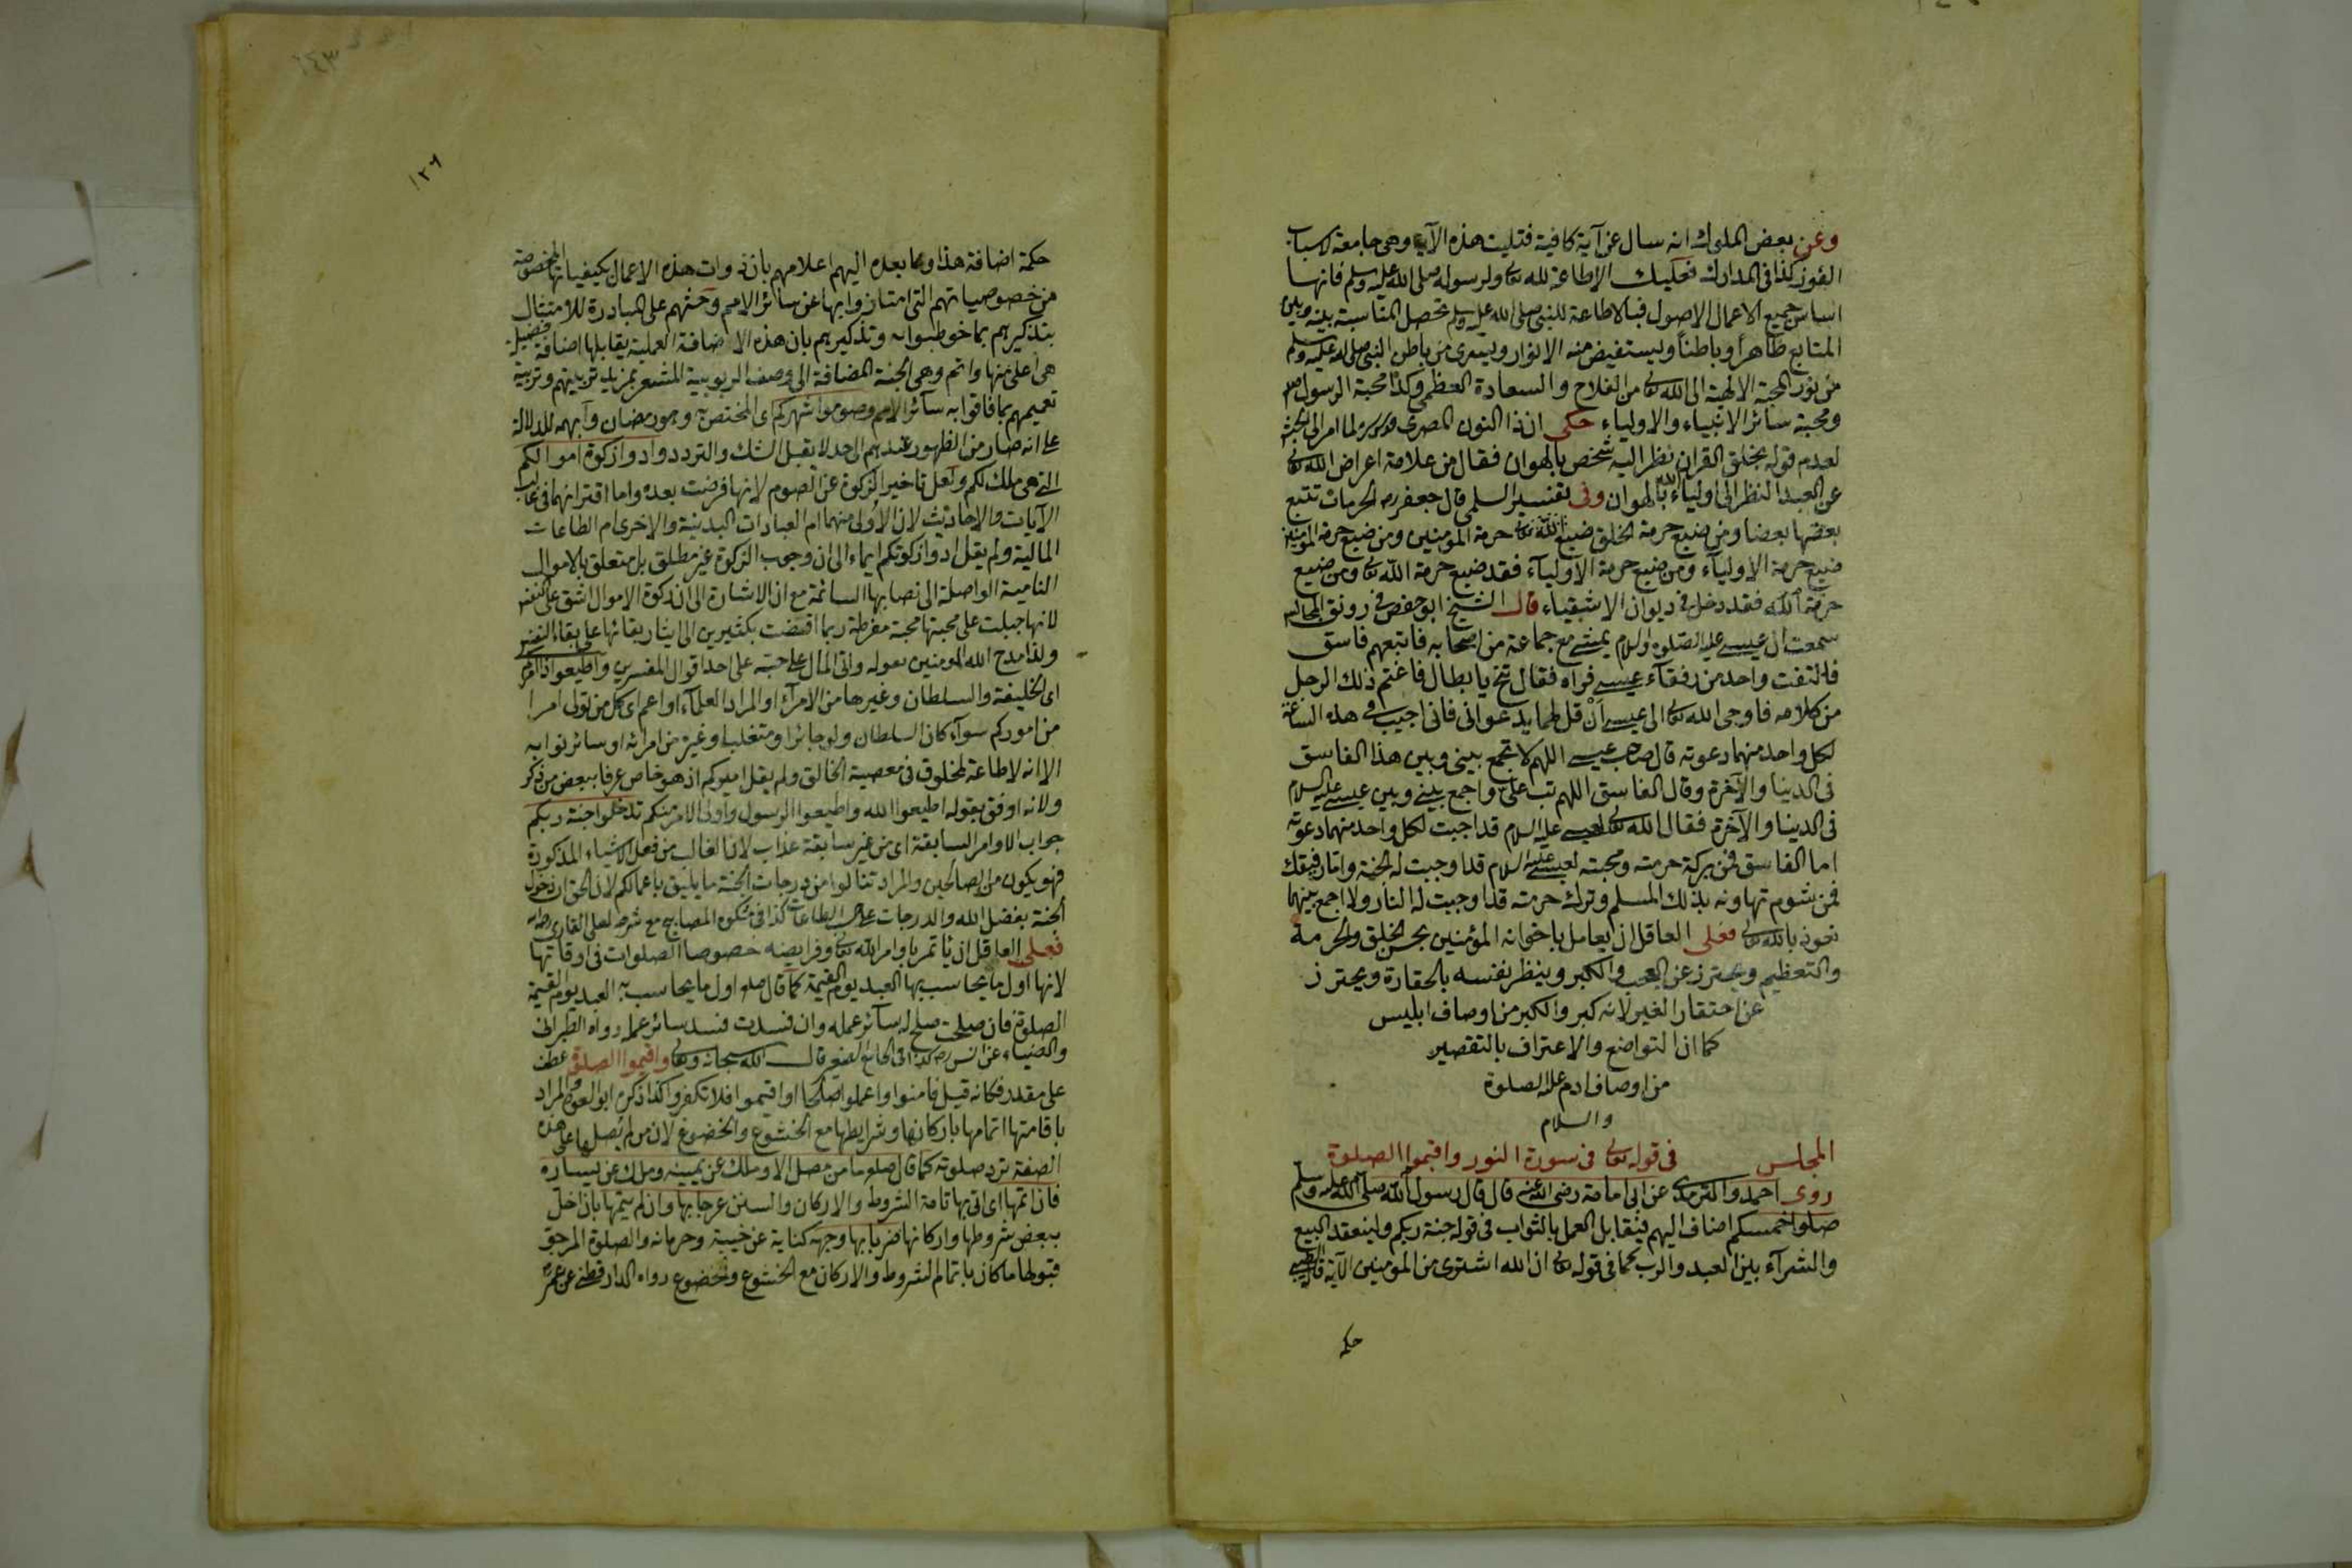 وعن بعض الملوك انه سال عن آية كافية فتليت هذه الآية وهي جامعة لاسباب
الفوز كذا في المدارك فعليك الاطاعة لله تعالى ولرسوله صلى الله عليه وسلم فانها
اساس جميع الاعمال الاصول فبالاطاعة للنبي صلى الله عليه وسلم تحصل المناسبة بينه وبين
المتابع ظاهرا وباطنا ويستفيض منه الانوار ويسرى من باطن النبي صلى الله عليه وسلم
من نور المحبة الالهية الى الله تعالى من الفلاح والسعادة العظمى وكذا محبة الرسول صلعم
ومحبة سائر الانبياء والاولياء حكى ان ذا النون المصرى لما امر الى
لعدم قوله بخلق القران نظر اليه شخص بالهوان فقال من علامة اعراض الله تعالى
عن العبد النظر الى اولياء الله بالهوان وفى تفسير السلمي قال جعفر رح الحرمات تتبع
بعضها بعضا ومن ضيع حرمة الخلق ضيع الله تعالى حرمة المؤمنين ومن ضيع حرمة المؤمنين
ضيع حرمة الاولياء ومن ضيع حرمة الاولياء فقد ضيع حرمة الله تعالى ومن ضيع
حرمة الله فقد دخل في ديوان الاشقياء قال الشيخ ابو حفص في رونق المجالس
سمعت ان عيسى عليه الصلوة والسلام يمشى مع جماعة من اصحابه فاتبعهم فاسق
فالتفت واحد من رفقاء عيسى فراه فقال تنح يا بطال فاغتم ذلك الرجل
من كلامه فاوحى الله تعالى الى عيسى ان قل لهما يدعوانى فانى اجيب في هذه الساعة
لكل واحد منهما دعوته قال صاحب عيسى اللهم لا تجمع بينى وبين هذا الفاسق
في الدنيا والآخرة وقال الفاسق اللهم تب على واجمع بينى وبين عيسى عليه السلام
في الدنيا والآخرة فقال الله تعالى لعيسى عليه السلام قد اجبت لكل واحد منهما دعوته
اما الفاسق فمن بركة حرمته ومحبته لعيسى عليه السلام قد اوجبت له الجنة واما رفيقك
فمن شوم تهاونه بذلك المسلم وترك حرمته قد اوجبت له النار ولا اجمع بينهما
نعوذ بالله تعالى فعلى العاقل ان يعامل باخوانه المؤمنين بحسن الخلق والحرمة
والتعظيم ويحترز عن العجب والكبر وينظر نفسه بالحقارة ويحترز
عن احتقار الغير لانه كبر والكبر من اوصاف ابليس
كما ان التواضع والاعتراف بالتقصير
من اوصاف ادم عليه الصلوة
والسلام
المجلس في قوله تعالى في سورة النور واقيموا الصلوة
روى احمد والترمذى عن ابى امامة رضى الله عنه قال قال رسول الله صلى الله عليه وسلم
صلوا خمسكم اضاف اليهم ليقابل العمل بالثواب في قوله جنة ربكم ولينعقد البيع
والشرآء بين العبد والرب كما في قوله تعالى ان الله اشترى من المؤمنين الآية قال الطيبى
حكمة
١٢٦
حكمة اضافة هذا وما بعده اليهم اعلامهم بان ذوات هذه الاعمال بكيفياتها المخصوصة
من خصوصياتهم التى امتازوا بها عن سائر الامم وحثهم على المبادرة للامتثال
بتذكيرهم بما خوطبوا به وتذكيرهم بان هذه الاضافة العملية يقابلها اضافة فضلية
هى اعلى منها واتم وهى الجنة المضافة الى وصف الربوبية المشعر بمزيد تربيتهم وتربية
تعميمهم بما فاقوا به سائر الامم وصوموا شهركم اى المختص وهو رمضان وآبهمه للدلالة
على انه صار من الظهور عندهم الى حد لا يقبل الشك والتردد وادوا زكوة اموالكم
التي هى ملك لكم ولعل تاخير الزكوة عن الصوم لانها فرضت بعده واما اقترانهما في غالب
الآيات والاحاديث لان الاولى منهما ام العبادات البدنية والاخرى ام الطاعات
المالية ولم يقل ادوا زكوتكم ايماء الى ان وجوب الزكوة غير مطلق بل متعلق بالاموال
النامية الواصلة الى نصابها السائمة مع ان الاشارة الى ان زكوة الاموال اشق على النفس
لانها جبلت على محبتها محبة مفرطة ربما اقتضت بكثيرين الى ايثار بقائها على بقاء النفس
ولذا مدح الله المؤمنين بقوله وآتى المال على حبه على احد اقوال المفسرين واطيعوا ذا امركم
اى الخليفة والسلطان وغيرهما من الامراء او المراد العلماء او اعم اى كل من تولى امرا
من اموركم سوآء كان السلطان ولو جائرا ومتغلبا وغيره من امرائه او سائر نوابه
الا انه لا طاعة لمخلوق في معصية الخالق ولم يقل اميركم اذ هو خاص عرفا ببعض من ذكر
ولانه اوفق بقوله اطيعوا الله واطيعوا الرسول واولى الامر منكم تدخلوا جنة ربكم
جواب الاوامر السابقة اى من غير سابقة عذاب لان الغالب من فعل الاشياء المذكورة
فهو يكون من الصالحين والمراد تنالوا من درجات الجنة ما يليق باعمالكم لان الحق ان دخول
الجنة بفضل الله والدرجات على حسب الطاعات كذا في مشكوة المصابيح مع شرحه لعلى القارى رحمه الله
فعلى العاقل ان يأتمر باوامر الله تعالى وفرايضه خصوصا الصلوات في اوقاتها
لانها اول ما يحاسب بها العبد يوم القيمة كما قال صلعم اول ما يحاسب به العبد يوم القيمة
الصلوة فان صلحت صلح له سائر عمله وان فسدت فسد سائر عمله رواه الطبرانى
والضياء عن انس رض كذا في الجامع الصغير قال الله سبحانه وتعالى واقيموا الصلوة عطف
على مقدر فكانه قيل فامنوا واعملوا صالحا واقيموا فلا تكفروا كذا ذكره ابو السعود والمراد
باقامتها اتمامها باركانها وشرايطها مع الخشوع والخضوع لان من لم يصل على هذه
الصفة ترد صلوته كما قال صلعم ما من مصل الا وملك عن يمينه وملك عن يساره
فان اتمها اى اتى بها تامة الشروط والاركان والسنن عرجا بها وان لم يتمها بان اخل
ببعض شروطها واركانها ضربا بها وجهه كناية عن خيبته وحرمانه والصلوة المرجو
قبولها ما كان باتمام الشروط والاركان مع الخشوع وخضوع رواه الدارقطنى عن عمر رض